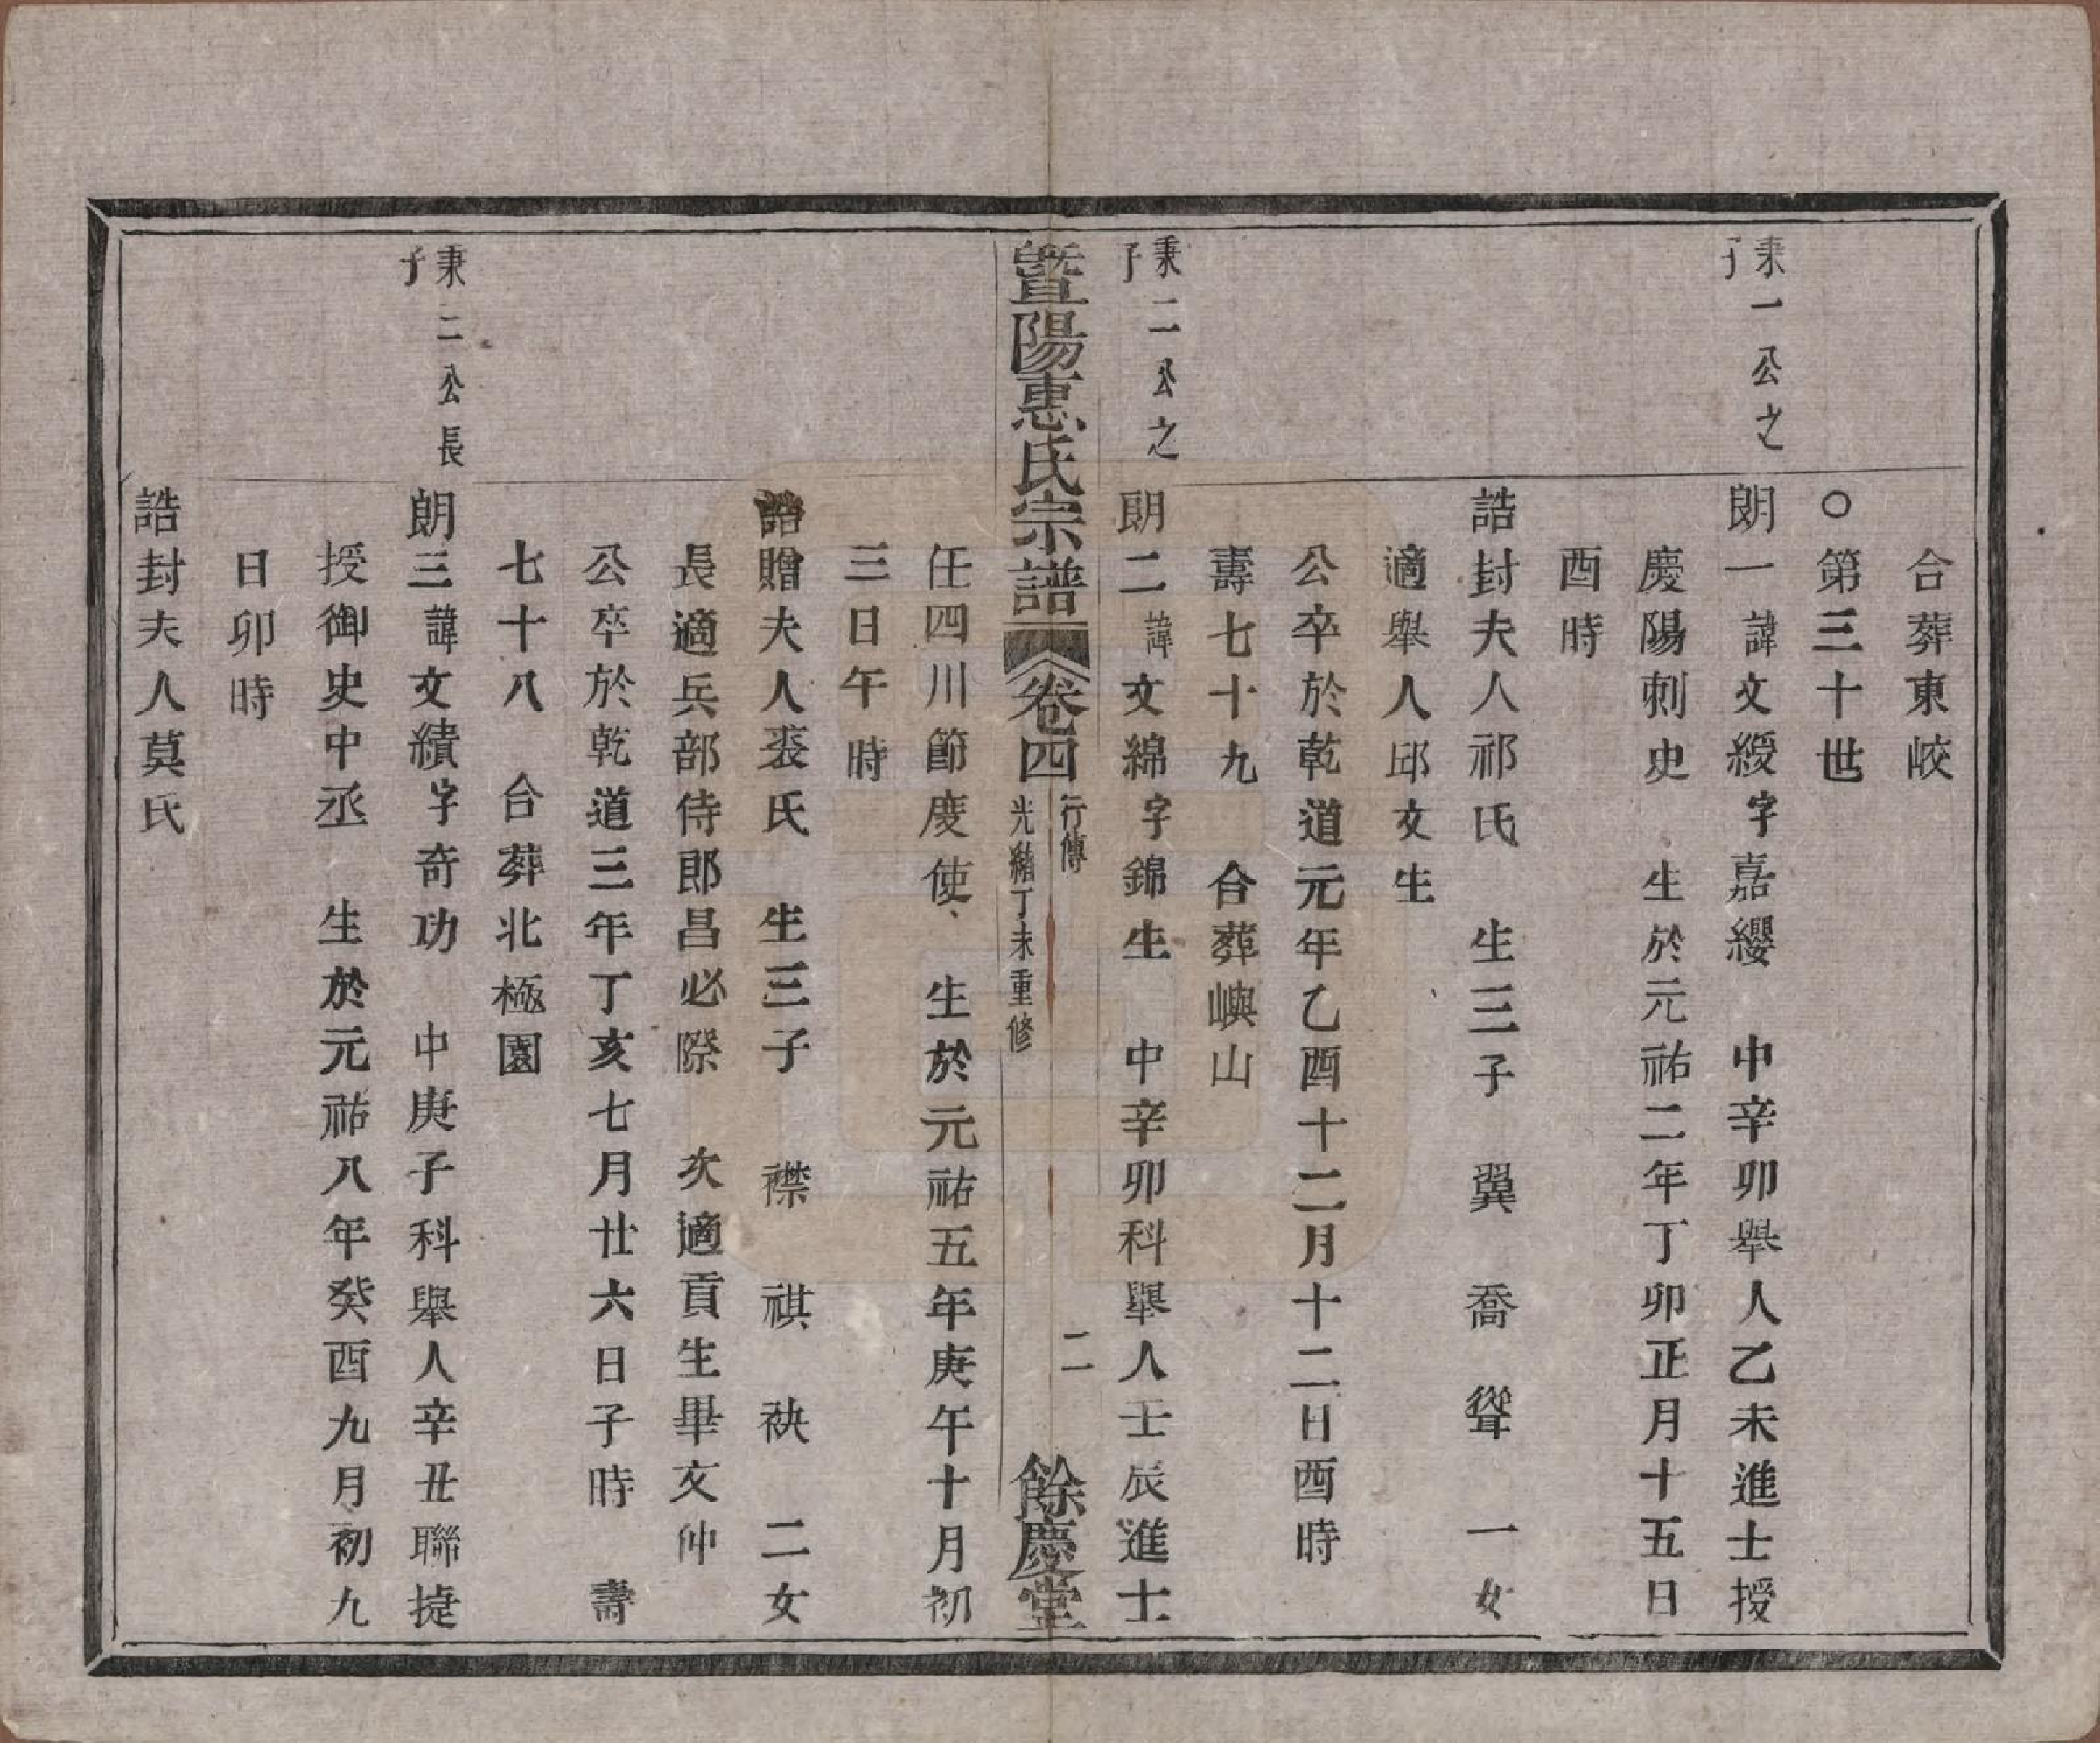 合葬東峧
○第三十世
秉一公之
子
朗一諱文綬字嘉纓　中辛卯舉人乙未進士授
慶陽刺史　生於元祐二年丁卯正月十五日
酉時
誥封夫人祁氏　生三子　翼　喬　聳　一女
適舉人邱文生
公卒於乾道元年乙酉十二月十二日酉時
壽七十九　合葬嶼山
秉二公之
子
朗二諱文綿字錦生　中辛卯科舉人壬辰進士
暨陽惠氏宗譜
卷四
行傳
光緒丁未重修
二
餘慶堂
任四川節度使　生於元祐五年庚午十月初
三日午時
誥贈夫人裘氏　生三子　襟　祺　袂　二女
長適兵部侍郎昌必際　次適貢生畢文仲
公卒於乾道三年丁亥七月廿六日子時　壽
七十八　合葬北極園
秉二公長
子
朗三諱文績字奇功　中庚子科舉人辛丑聯捷
授御史中丞　生於元祐八年癸酉九月初九
日卯時
誥封夫人莫氏